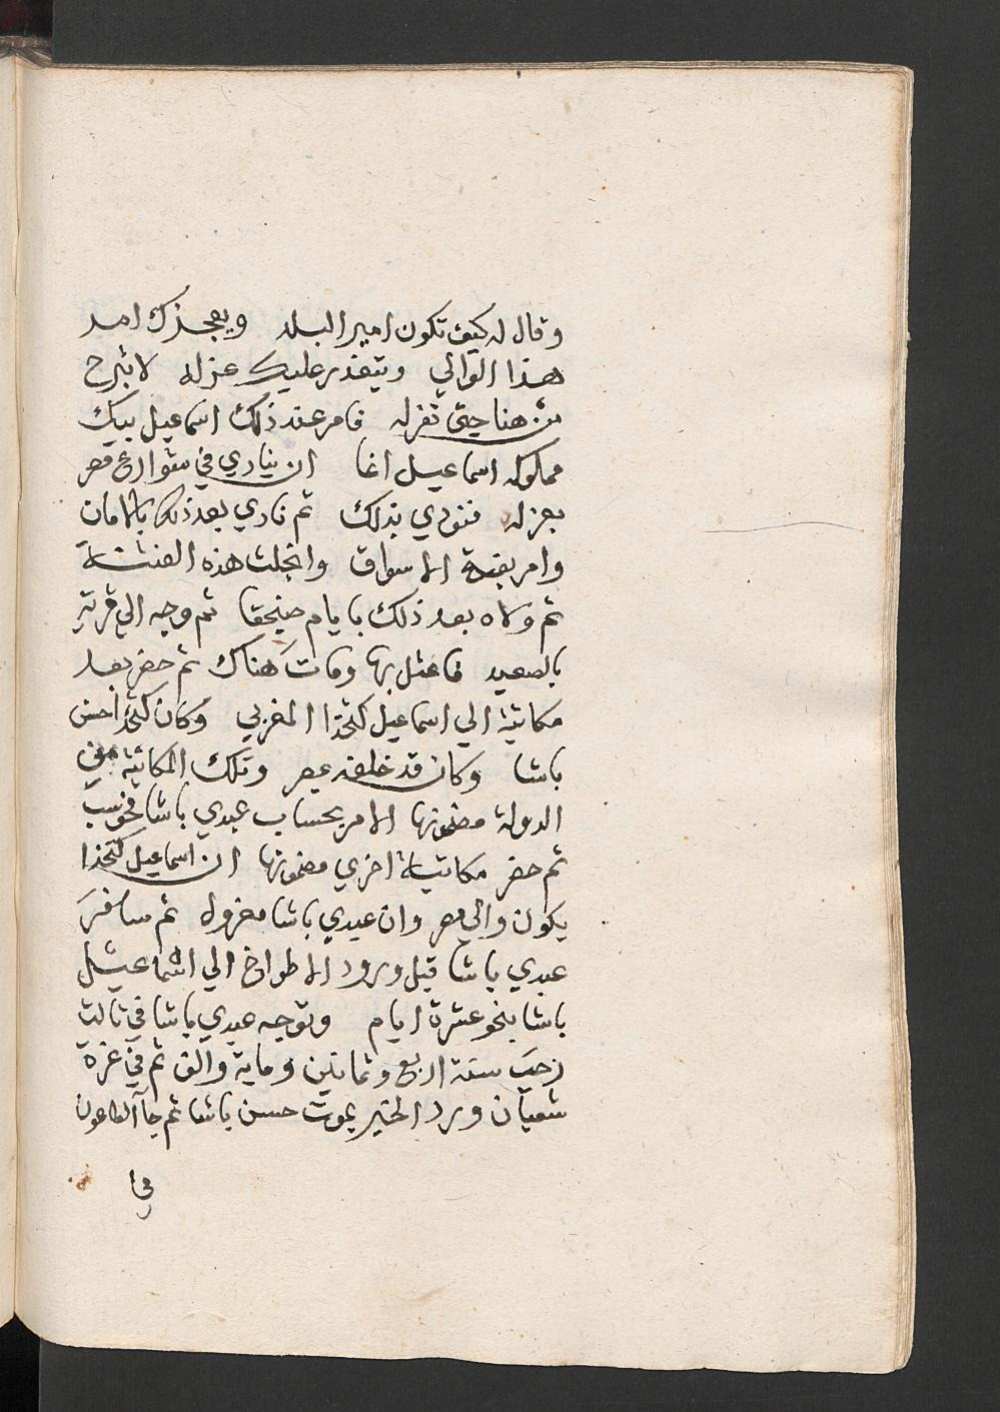 وقال له كيف تكون امير البلد ويعجزك امر
هذا الوالي ويتعذر عليك عزله لا تبرح
من هنا حتى تعزله فامر عند ذلك اسماعيل بيك
مملوكه اسماعيل اغا ان ينادي في شوارع مصر
بعزله فنودي بذلك ثم نادي بعد ذلك بالامان
وامر بفتح الاسواق وانجلت هذه الفتنة
ثم ولاه بعد ذلك بايام صنجقا ثم وجه الي قرية
بالصعيد بها ومات هناك ثم حضر بعد
مكاتبة الي اسماعيل كتخدا المغربي وكان كتخدا حسن
باشا وكان قد خلفه بمصر وتلك المكاتبة من
الدولة مضمونها الامر بحساب عبدي باشا فحوسب
ثم حضر مكاتبة اخري مضمونها ان اسماعيل كتخدا
يكون والي مصر وان عبدي باشا معزول ثم سافر
عبدي باشا قبل ورود الاطواخ الي اسماعيل
باشا بنحو عشرة ايام وتوجه عبدي باشا في ثالث
رجب سنة اربع وثمانين وماية والف ثم في غرة
شعبان ورد الخبر بموت حسن باشا ثم جآ الطاعون
في